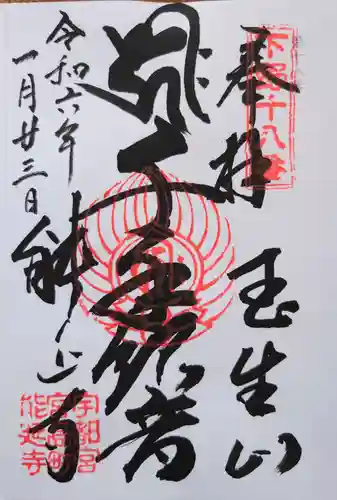 下野十八番
奉拝
玉生山
千手観音
能延寺
令和六年
一月廿三日
宇都宮
能延寺